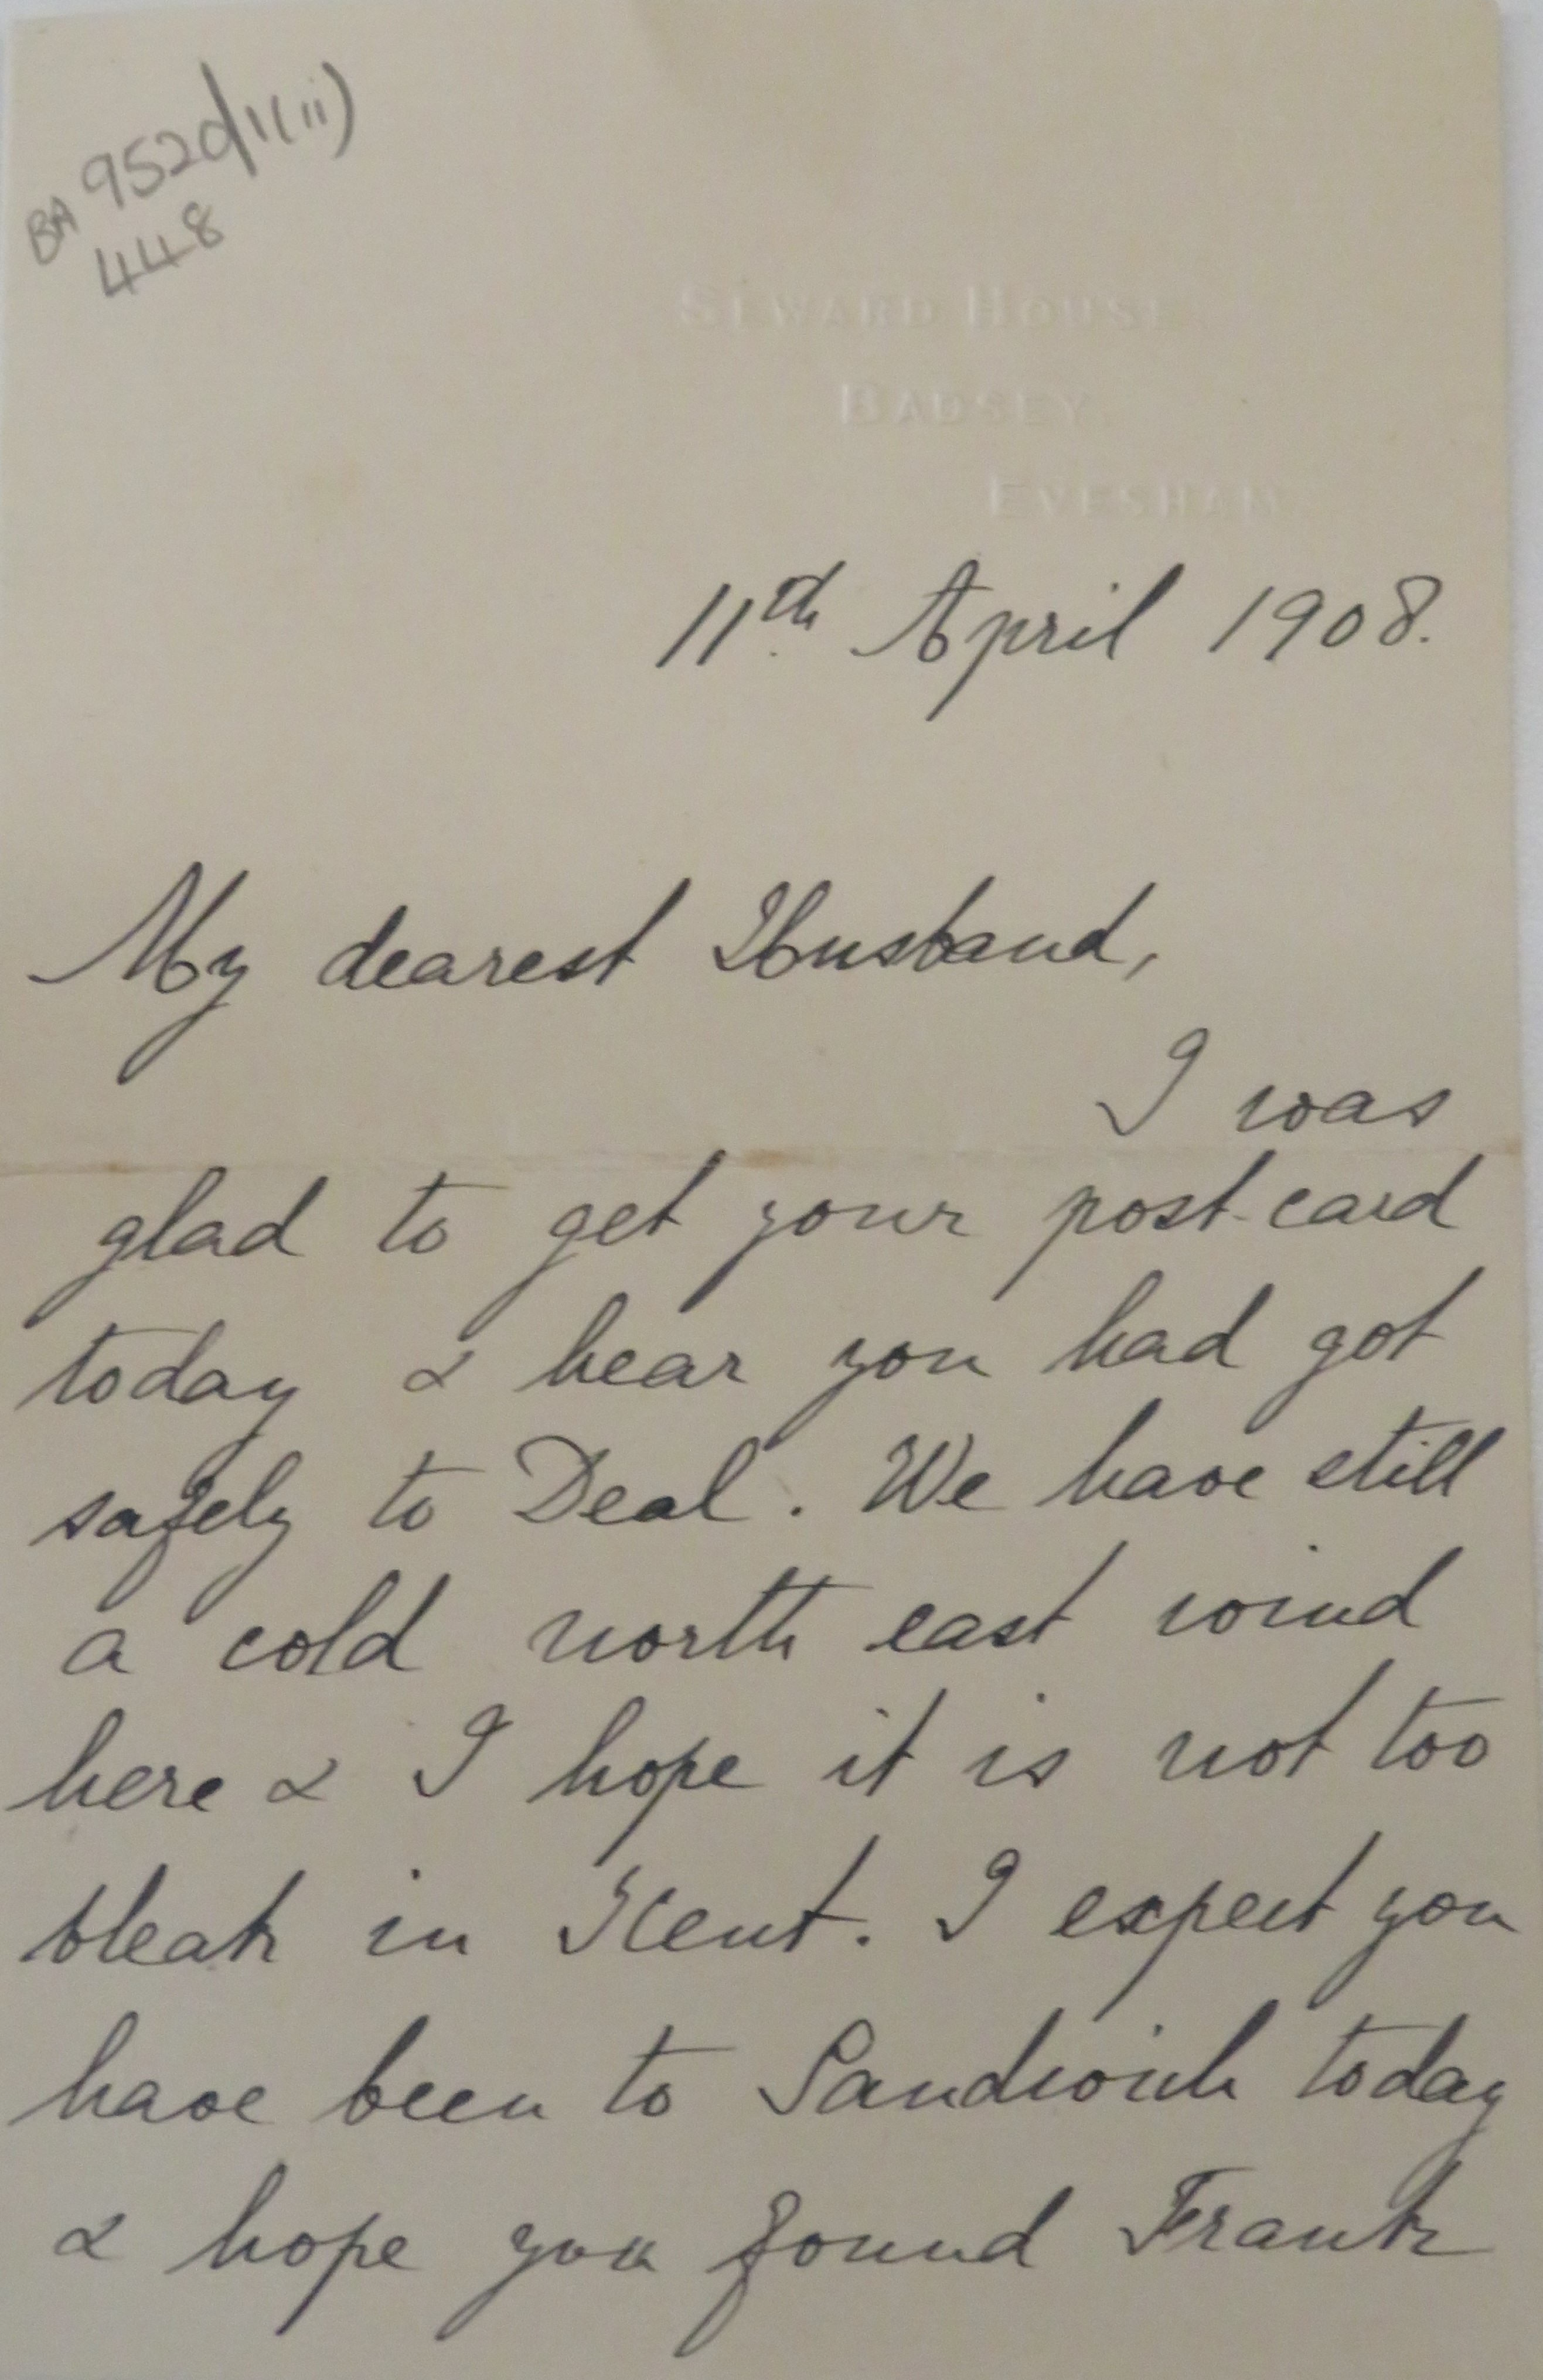 BA 9520/11(ii)
448
SEWARD HOUSE,
BADSEY,
EVESHAM.
11th April 1908.
My dearest Husband,
I was
glad to get your post-card
today & hear you had got
safely to Deal. We have still
a cold north east wind
here & I hope it is not too
bleak in Kent. I expect you
have been to Sandwich today
& hope you found Frank